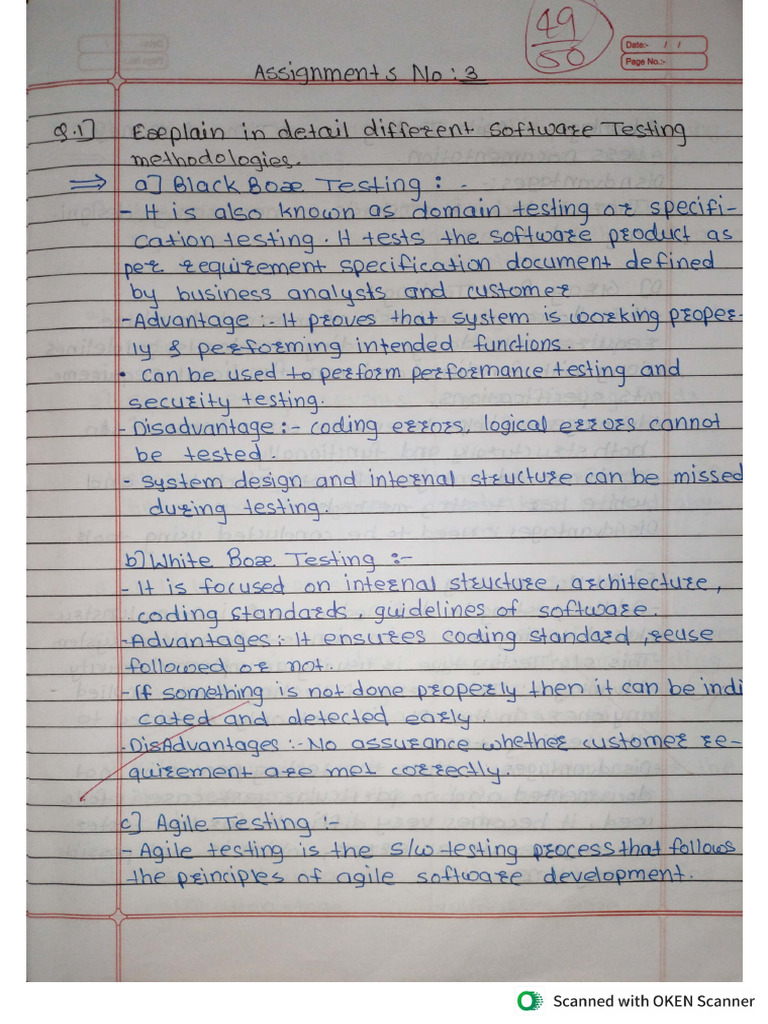 49
50
Date:- / /
Page No.:-
Assignments No : 3
Q.1] Explain in detail different software Testing
methodologies.
⇒ a] Black Box Testing : -
- It is also known as domain testing or specifi-
cation testing. It tests the software product as
per requirement specification document defined
by business analysts and customer
- Advantage :- It proves that system is working proper-
ly & performing intended functions.
• Can be used to perform performance testing and
security testing.
- Disadvantage :- coding errors, logical errors cannot
be tested.
- System design and internal structure can be missed
during testing.
b] White Box Testing :-
- It is focused on internal structure, architecture,
coding standards, guidelines of software.
- Advantages :- It ensures coding standard, reuse
followed or not.
- If something is not done properly then it can be indi
cated and detected early
- DisAdvantages :- No assurance whether customer re-
quirement are met correctly.
c] Agile Testing :-
- Agile testing is the s/w testing process that follows
the principles of agile software development.
Scanned with OKEN Scanner